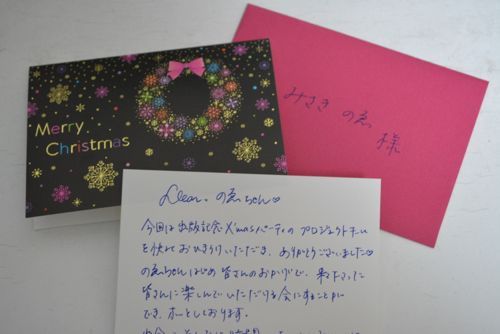 Merry
Christmas
みさき のゑ
様
Dear. のゑちゃん♡
今回は出版記念X'masパーティのプロジェクトチーム
を快くお引きうけいただき、ありがとうございました♡
のゑちゃんはじめ皆さんのおかげで、来て下さった
皆さんに楽しんでいただける会にすることが
でき、ホッとしております。